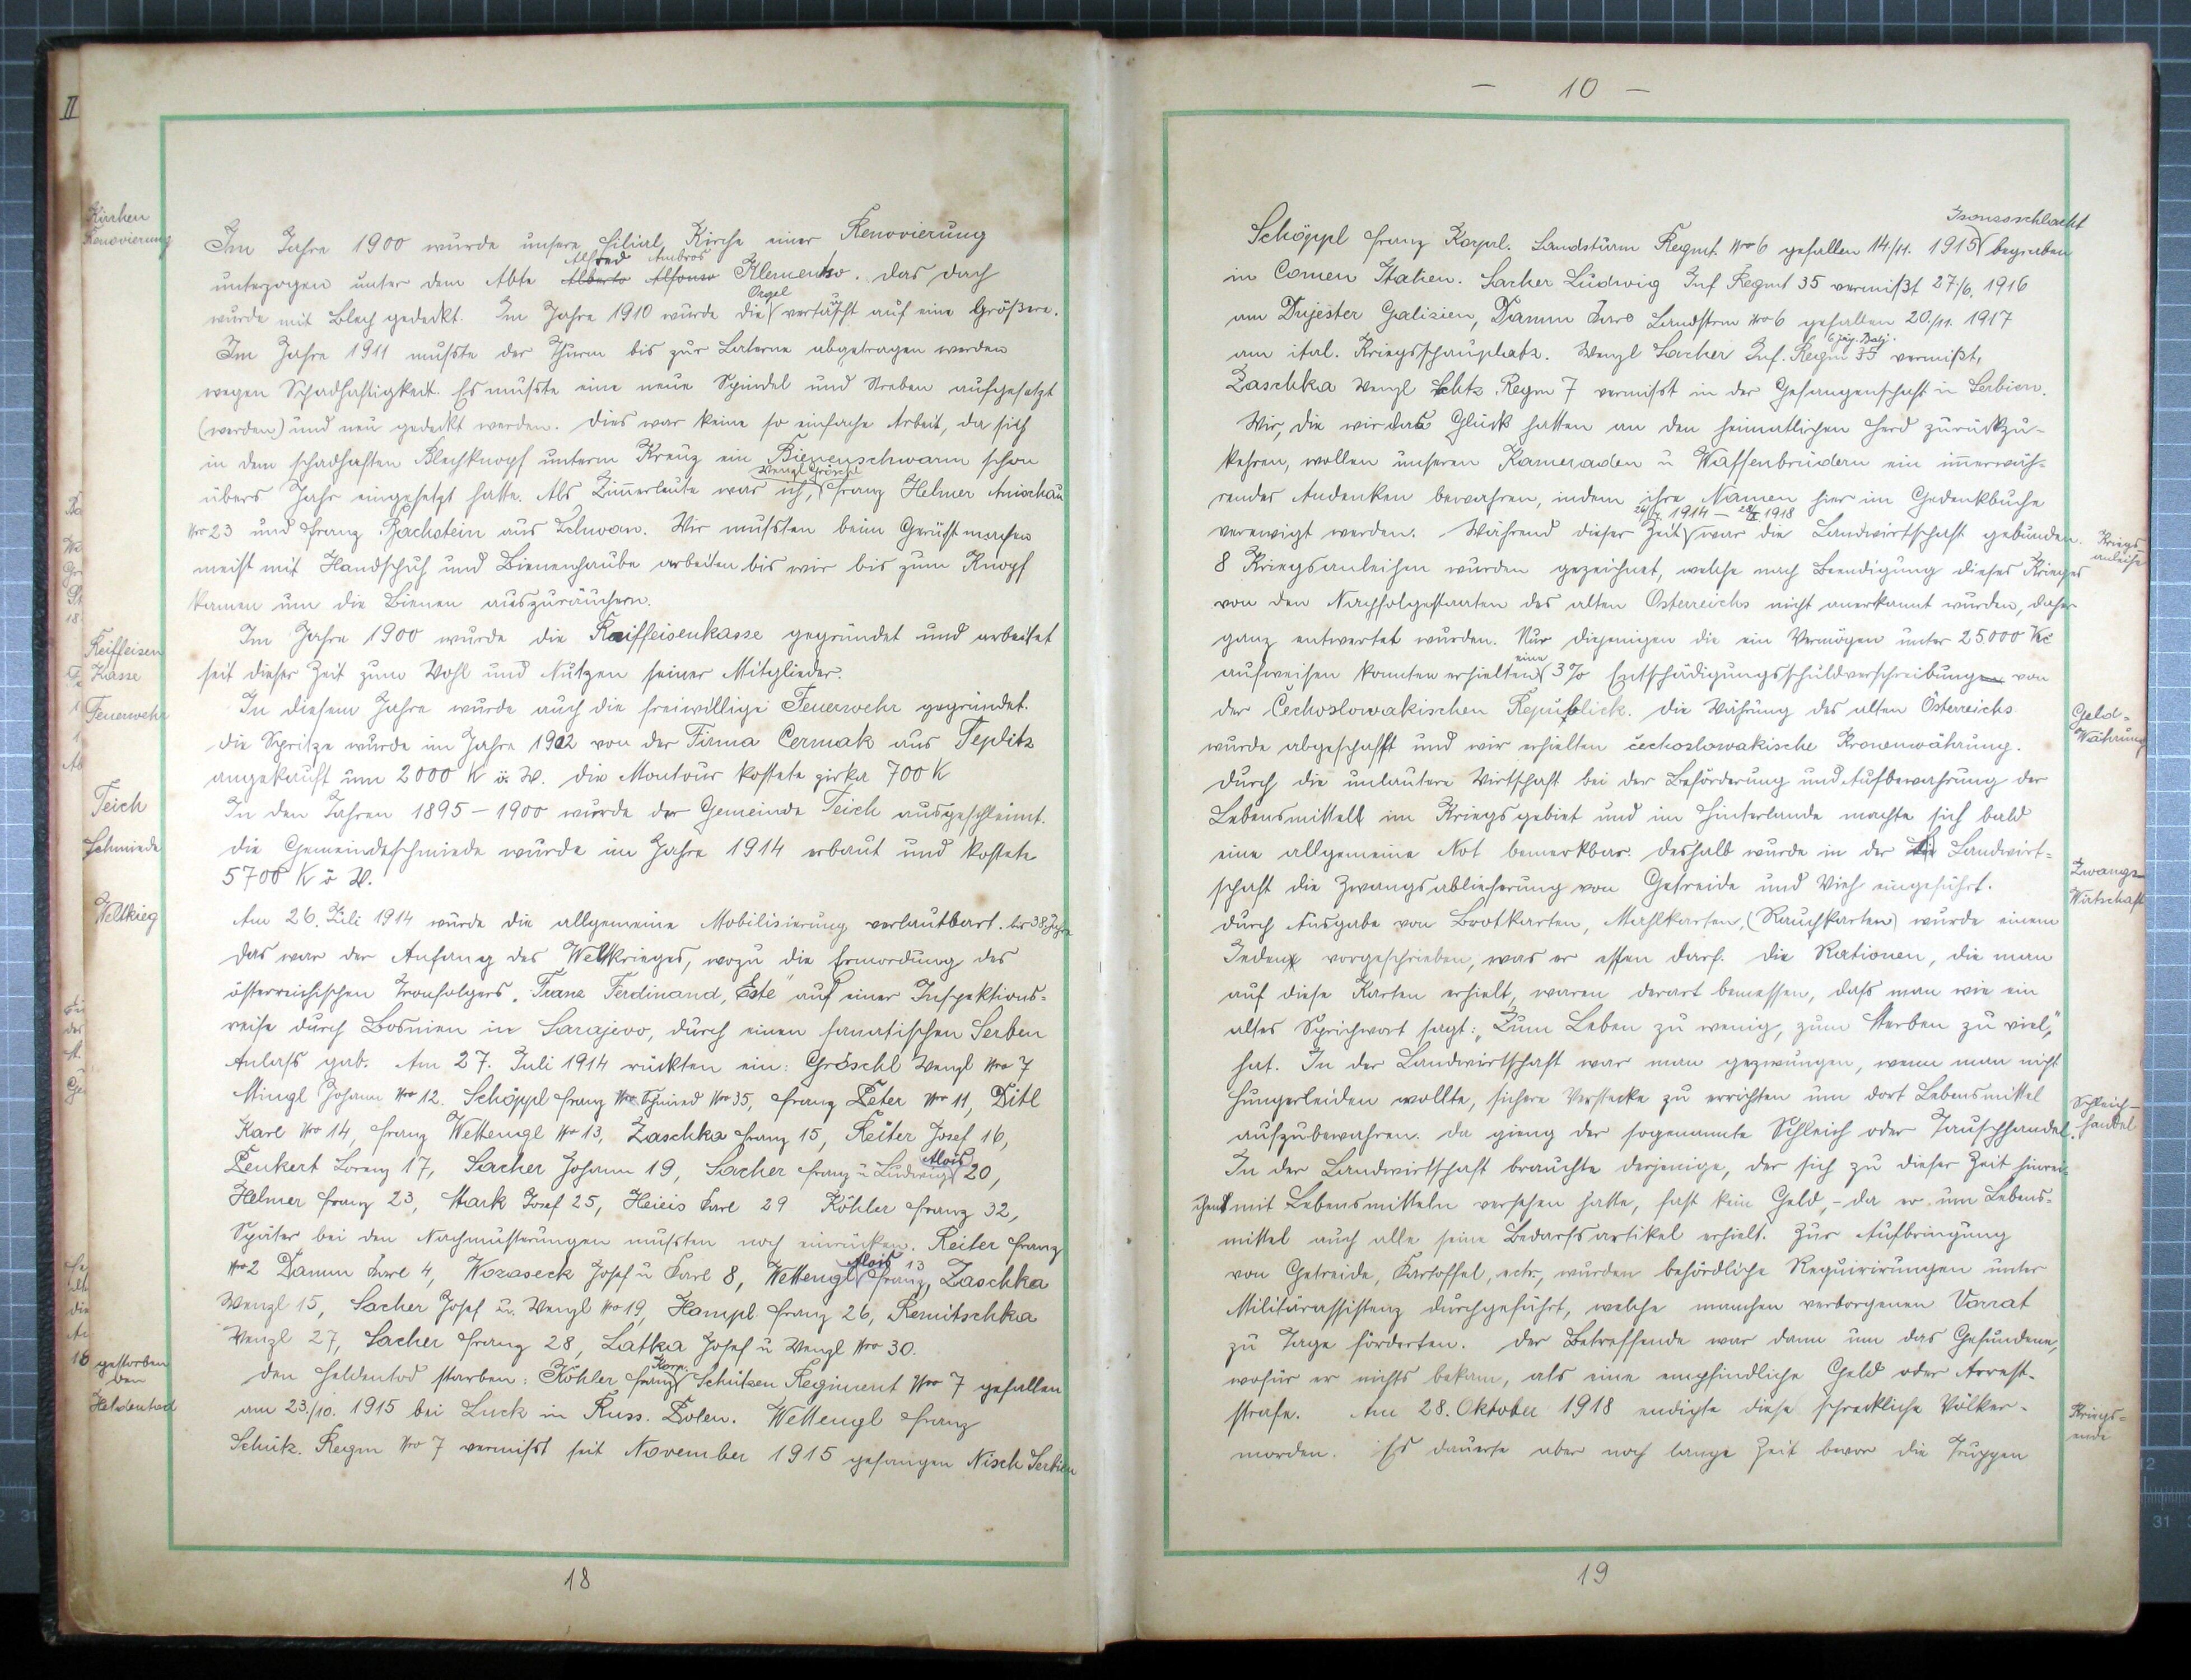 II
Kirchen
Renovierung
Im Jahre 1900 wurde unsere Filial Kirche einer Renovierung
Alfred Ambros
unterzogen unter dem Abte Alberto Alfonso Klemento. Das Dach
Orgel
wurde mit Blech gedeckt. Im Jahre 1910 wurde die vertauscht auf eine Größere.
Im Jahre 1911 mußte der Thurm bis zur Laterne abgetragen werden
wegen Schadhaftigkeit. Es mußte eine neue Spindel und Streben aufgesetzt
(werden) und neu gedeckt werden. Dies war keine so einfache Arbeit, da sich
in dem schadhaften Blechknopf unterm Kreuz ein Bienenschwarm schon
Wenzl Gröschl
übers Jahr eingesetzt hatte. Als Zimmerleute war ich, Franz Helmer Anischau
Nro 23 und Franz Pachstein aus Selwan. Wir mußten beim Gerüstmachen
meist mit Handschuh und Bienenhaube arbeiten bis wir bis zum Knopf
kamen um die Bienen auszuräuchern.
Reiffeisen
Kasse
Im Jahre 1900 wurde die Raiffeisenkasse gegründet und arbeitet
seit dieser Zeit zum Wohl und Nutzen seiner Mitglieder.
Feuerwehr
In diesem Jahre wurde auch die freiwillige Feuerwehr gegründet.
Die Spritze wurde im Jahre 1902 von der Firma Cermak aus Teplitz
angekauft um 2000 K ö. W. Die Montour kostete zirka 700 K
Teich
In den Jahren 1895 – 1900 wurde der Gemeinde Teich ausgeschlämmt.
Schmiede
Die Gemeindeschmiede wurde im Jahre 1914 erbaut und kostete
5700 K ö W.
Weltkrieg
Am 26. Juli 1914 wurde die allgemeine Mobilisierung verlautbart. bis 38 Jahre
Das war der Anfang des Weltkrieges, wozu die Ermordung des
österreichischen Tronfolgers „Franz Ferdinand, Este" auf einer Inspektions=
reise durch Bosnien in Sarajevo, durch einen fanatischen Serben
Anlaß gab. Am 27. Juli 1914 rückten ein: Gröschl Wenzl Nro 7
Mingl Johann Nro 12. Schöppl Franz Schmied Nro 35, Franz Peter Nro 11, Ditl
Karl Nro 14, Franz Wettengl Nro 13, Zaschka Franz 15, Reiter Josef 16,
Alois
Penkert Lorenz 17, Sacher Johann 19, Sacher Franz u Ludwig 20,
Helmer Franz 23, Stark Josef 25, Heieis Karl 29 Köhler Franz 32,
Später bei den Nachmusterungen mußten noch einrücken. Reiter Franz
Alois 13
Nro 2 Damm Karl 4, Woraseck Josef u Karl 8, Wettengl Franz, Zaschka
Wenzl 15, Sacher Josef u. Wenzl Nro 19, Hampl Franz 26, Remitschka
Wenzl 27, Sacher Franz 28, Latka Josef u Wenzl Nro 30.
gestorben
den
Heldentod
Korp.
Den Heldentod starben: Köhler Franz Schützen Regiment Nro 7 gefallen
am 23./10. 1915 bei Luck in Russ. Polen. Wettengl Franz
Schütz. Regm Nro 7 vermißt seit November 1915 gefangen Nisch Serbien
18
– 10 –
Isonzoschlacht
Schöppl Franz Korprl. Landsturm Regmt. Nro 6 gefallen 14./11. 1915 begraben
in Comen Italien. Sacher Ludwig Inf Regmt 35 vermißt 27./6. 1916
am Dnjester Galizien, Damm Karl Landstrm Nro 6 gefallen 20./11. 1917
6 Jäg. Batj.
am ital. Kriegsschauplatz. Wenzl Sacher Inf. Regm 35 vermißt,
Zaschka Wenzl Schtz Regm 7 vermißt in der Gefangenschaft in Serbien.
Wir, die wir das Glück hatten an den heimatlichen Herd zurückzu-
kehren, wollen unseren Kameraden u Waffenbrüdern ein immerwäh-
rendes Andenken bewahren, indem ihre Namen hier im Gedenkbuche
26/7. 1914 – 28/X 1918
verewigt werden. Während dieser Zeit war die Landwirtschaft gebunden.
Kriegs
anleihe
8 Kriegsanleihen wurden gezeichnet, welche nach Beendigung dieses Krieges
von den Nachfolgestaaten des alten Österreichs nicht anerkannt wurden, daher
ganz entwertet wurden. Nur diejenigen die ein Vermögen unter 25000 Kč
eine
aufweisen konnten erhielten 3% Entschädigungsschuldverschreibungen von
der Čechoslowakischen Republick. Die Währung des alten Österreichs
Geld=
Währung
wurde abgeschafft und wir erhielten čechoslowakische Kronenwährung.
Durch die unlautere Wirtschaft bei der Beförderung und Aufbewahrung der
Lebensmittell im Kriegsgebiet und im Hinterlande machte sich bald
eine allgemeine Not bemerkbar. Deshalb wurde in der Landwirt=
schaft die Zwangsablieferung von Getreide und Vieh eingeführt.
Zwangs-
Wirtschaft
Durch Ausgabe von Brotkarten, Mahlkarten, (Rauchkarten) wurde einem
Jedem vorgeschrieben, was er essen darf. Die Rationen, die man
auf diese Karten erhielt, waren derart bemessen, daß man wie ein
altes Sprichwort sagt: „Zum Leben zu wenig, zum Sterben zu viel,"
hat. In der Landwirtschaft war man gezwungen, wenn man nicht
Hungerleiden wollte, sichere Verstecke zu errichten um dort Lebensmittel
Schleich-
handel
aufzubewahren. Da gieng der sogenannte Schleich oder Tauschhandel.
In der Landwirtschaft brauchte derjenige, der sich zu dieser Zeit hinrei-
chend mit Lebensmitteln versehen hatte, fast kein Geld, – da er um Lebens=
mittel auch alle seine Bedarfsartikel erhielt. Zur Aufbringung
von Getreide, Kartoffel, ectr, wurden behördliche Requirirungen unter
Militärassistenz durchgeführt, welche manchen verborgenen Vorrat
zu Tage förderten. Der Betreffende war dann um das Gefundene,
wofür er nichts bekam, als eine empfindliche Geld oder Arrest-
strafe. Am 28. Oktober 1918 endigte diese schreckliche Völker-
Kriegs-
ende
morden. Es dauerte aber noch lange Zeit bevor die Truppen
19